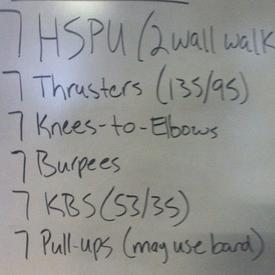 7 HSPU (2 wall walk
7 Thrusters (135/95)
7 Knees-to-Elbows
7 Burpees
7 KBS (53/35)
7 Pull-ups (may use band)